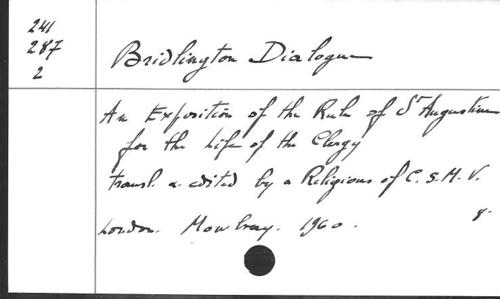 241
287
2
Bridlington Dialogue
An Exposition of the Rule of St Augustine
for the Life of the Clergy
transl. a. edited by a Religious of C.S.M.V.
London. Mowbray. 1960.
8.